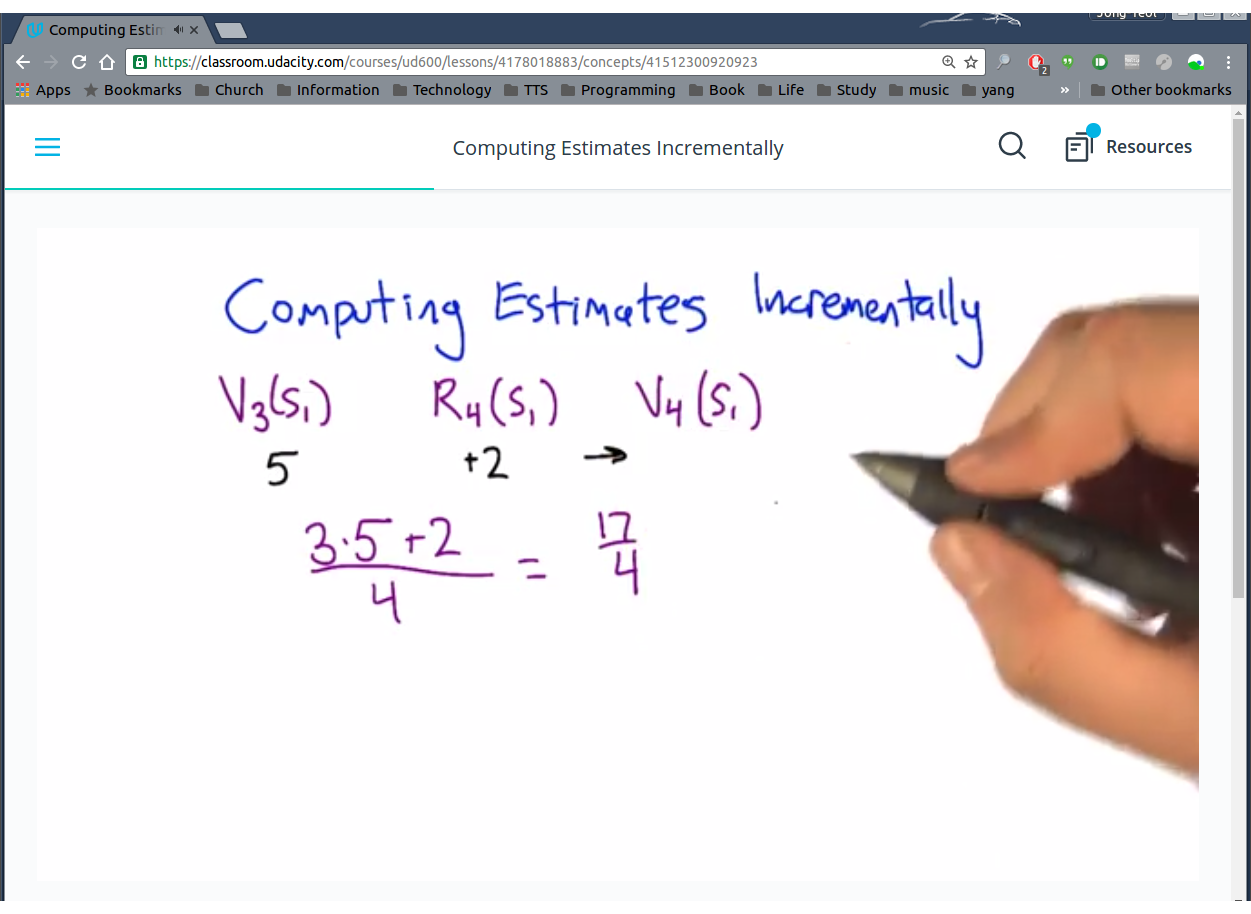 Computing Estim
Jong Yeol
https://classroom.udacity.com/courses/ud600/lessons/4178018883/concepts/41512300920923
2
Apps Bookmarks Church Information Technology TTS Programming Book Life Study music yang » Other bookmarks
Computing Estimates Incrementally
Resources
Computing Estimates Incrementally
V₃(S₁) R₄(S₁) V₄(S₁)
5 +2 →
3·5+2 17
= 
4 4